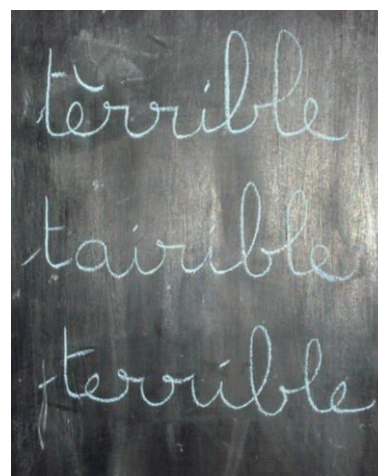 tèrrible
tairible
terrible